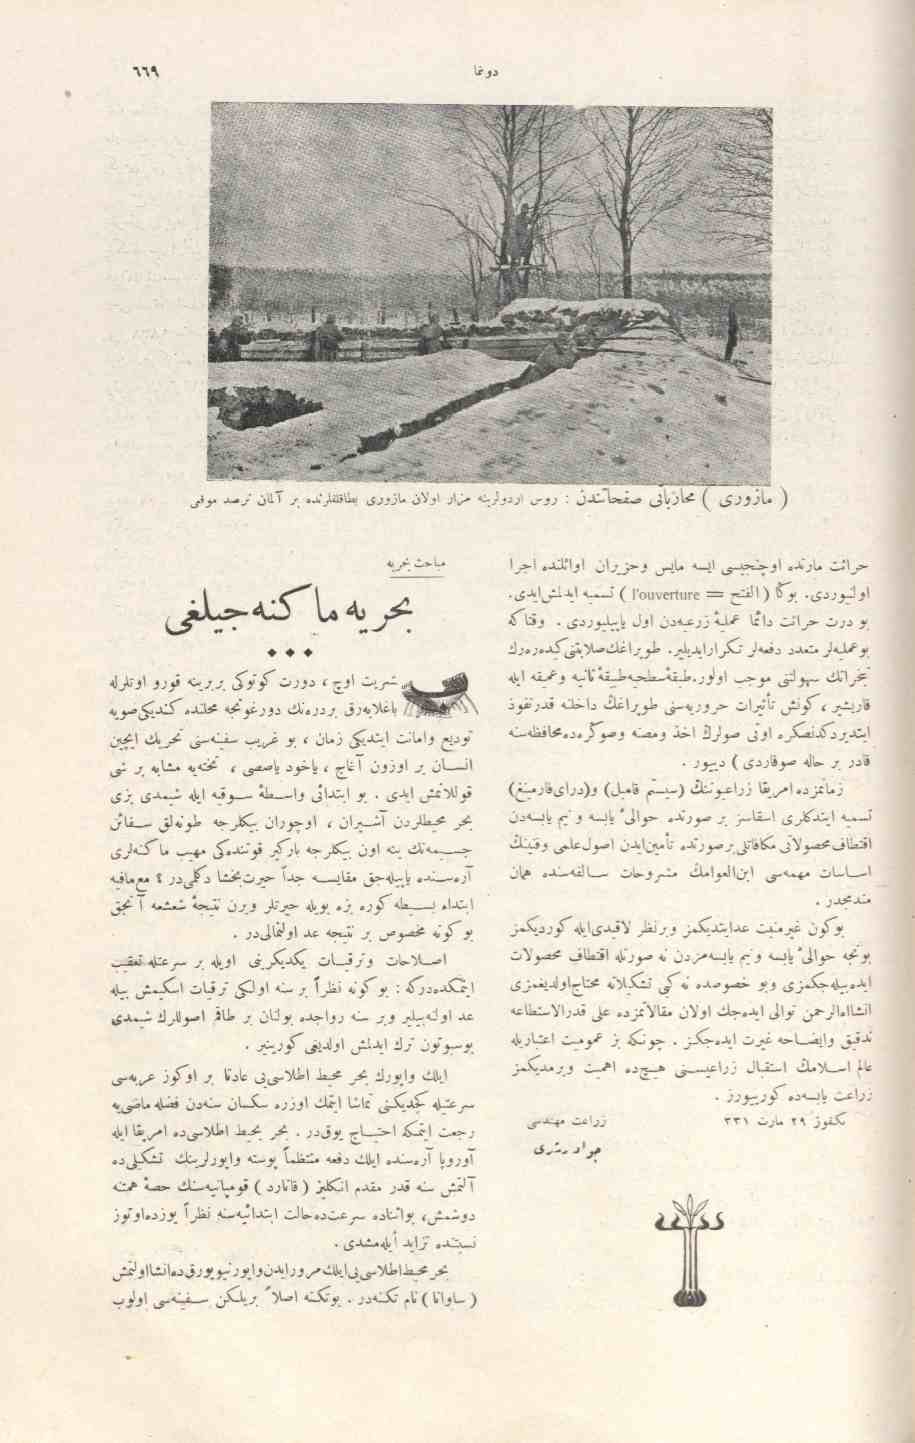 دونما
٦٦٩
( مازوری ) محارباتی صفحاتندن : روس اردولرینه مزار اولان مازوری بطاقلقلرنده بر آلمان ترصد موقعی
حراثت مارتده اوچنجیسی ایسه مایس وحزیران اوائلنده اجرا
اولنیوردی. بوکا ( الفتح = l'ouverture ) تسمیه ایدلمش‌ایدی.
بو درت حراثت دائما عملیهٔ زرعیه‌دن اول یاپیلیوردی . وقتا که
بوعملیه‌لر متعدد دفعه‌لر تکرارایدیلیر. طوپراغك‌صلابتنی‌کیده‌ره‌رك
تبخراتك سهولتنی موجب اولور. طبقهٔ‌سطحیه‌طبقهٔ‌ثانیه وعمیقه ایله
قاریشیر ، کونش تأثیرات حروریه‌سنی طوپراغك داخلنه قدرنفوذ
ایتدیردکدنصکره اوتی صولرك اخذ ومصنه وصوکره‌ده‌محافظه‌سنه
قادر بر حاله صوقاردی ) دییور .
زمانمزده امریقا زراعیونتك (سیستم قامبل) و(درای‌فارمینغ)
تسمیه ایتدکلری اسقاسز بر صورتده حوالیٔ یابسه و نیم یابسه‌دن
اقتطاف محصولاتی مکافاتلی برصورتده تأمین‌ایدن اصول‌علمی وفنینك
اساسات مهمه‌سی ابن‌العوامك مشروحات سالفه‌سنده همان
مندمجدر .
بوکون غیرمنبت عدایتدیکمز وبرنظر لاقیدی‌ایله کوردیکمز
بونجه حوالیٔ یابسه و نیم یابسه‌مزدن نه صورتله اقتطاف محصولات
ایده‌بیله‌جکمزی وبو خصوصده نه کبی تشکیلاته محتاج‌اولدیغمزی
انشاءالرحمن توالی ایده‌جك اولان مقالاتمزده علی قدرالاستطاعه
تدقیق وایضاحه غیرت ایده‌جکز . چونکه بز عمومیت اعتباریله
عالم اسلامك استقبال زراعیسنی هیچ‌ده اهمیت ویرمدیکمز
زراعت یابسه‌ده کورییورز .
تکفوز ٢٩ مارت ٣٣١
زراعت مهندسی
جواد رشدی
مباحث بحریه
بحریه ماکنه‌جیلغی
بشریت اوچ ، دورت کوتوکی بربرینه قورو اوتلرله
باغلایه‌رق بردره‌نك دورغونجه محلنده کندیکی‌صویه
تودیع وامانت ایتدیکی زمان ، بو غریب سفینه‌سنی تحریك ایچین
انسان بر اوزون آغاج ، یاخود یاصصی ، تخته‌یه مشابه بر شی
قوللانمش ایدی . بو ابتدائی واسطهٔ سوقیه ایله شیمدی بزی
بحر محیطلردن آشیران ، اوچوران بیکلرجه طونه‌لق سفائن
جسیمه‌نك ینه اون بیکلرجه بارکیر قوتنده‌کی مهیب ماکنه‌لری
آره‌سنده یاپیله‌جق مقایسه جداً حیرت‌بخشا دکلمی‌در ؟ مع‌مافیه
ابتداء بسیطه کوره بزه بویله حیرتلر ویرن نتیجهٔ شعشعه آنجق
بو کونه مخصوص بر نتیجه عد اولنمالی‌در .
اصلاحات وترقیات یکدیکرینی اویله بر سرعتله تعقیب
ایتمکده‌درکه : بو کونه نظراً بر سنه اولکی ترقیات اسکیمش بیله
عد اولنه‌بیلیر وبر سنه رواجده بولنان بر طاقم اصوللرك شیمدی
بوسبوتون ترك ایدلمش اولدیغی کورینیر .
ایلك واپورك بحر محیط اطلاسی‌یی عادتا بر اوکوز عربه‌سی
سرعتیله کچدیکنی تماشا ایتمك اوزره سکسان سنه‌دن فضله ماضی‌یه
رجعت ایتمکه احتیاج یوق‌در . بحر محیط اطلاسی‌ده امریقا ایله
آوروپا آره‌سنده ایلك دفعه منتظماً پوسته واپورلرینك تشکیلی‌ده
آلتمش سنه قدر مقدم انکلیز ( قانارد ) قومپانیه‌سنك حصهٔ همتنه
دوشمش، بوائناده سرعت‌ده‌حالت ابتدائیه‌سنه نظراً یوزده‌اوتوز
نسبتنده تزاید ایله‌مشدی .
بحر محیط‌اطلاسی‌یی‌ایلك‌مرور ایدن‌واپور نیویورق‌ده‌انشااولنمش
( ساوانا ) نام تکنه‌در . بوتکنه اصلاً بریلکن سفینه‌سی اولوب